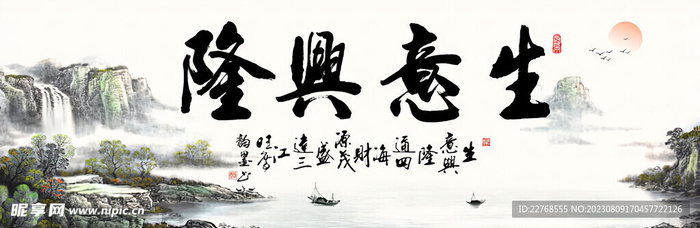 生意興隆
生意興隆通四海財源茂盛達三江
昵享网 www.nipic.cn
ID:22768555 NO:20230809170457722126